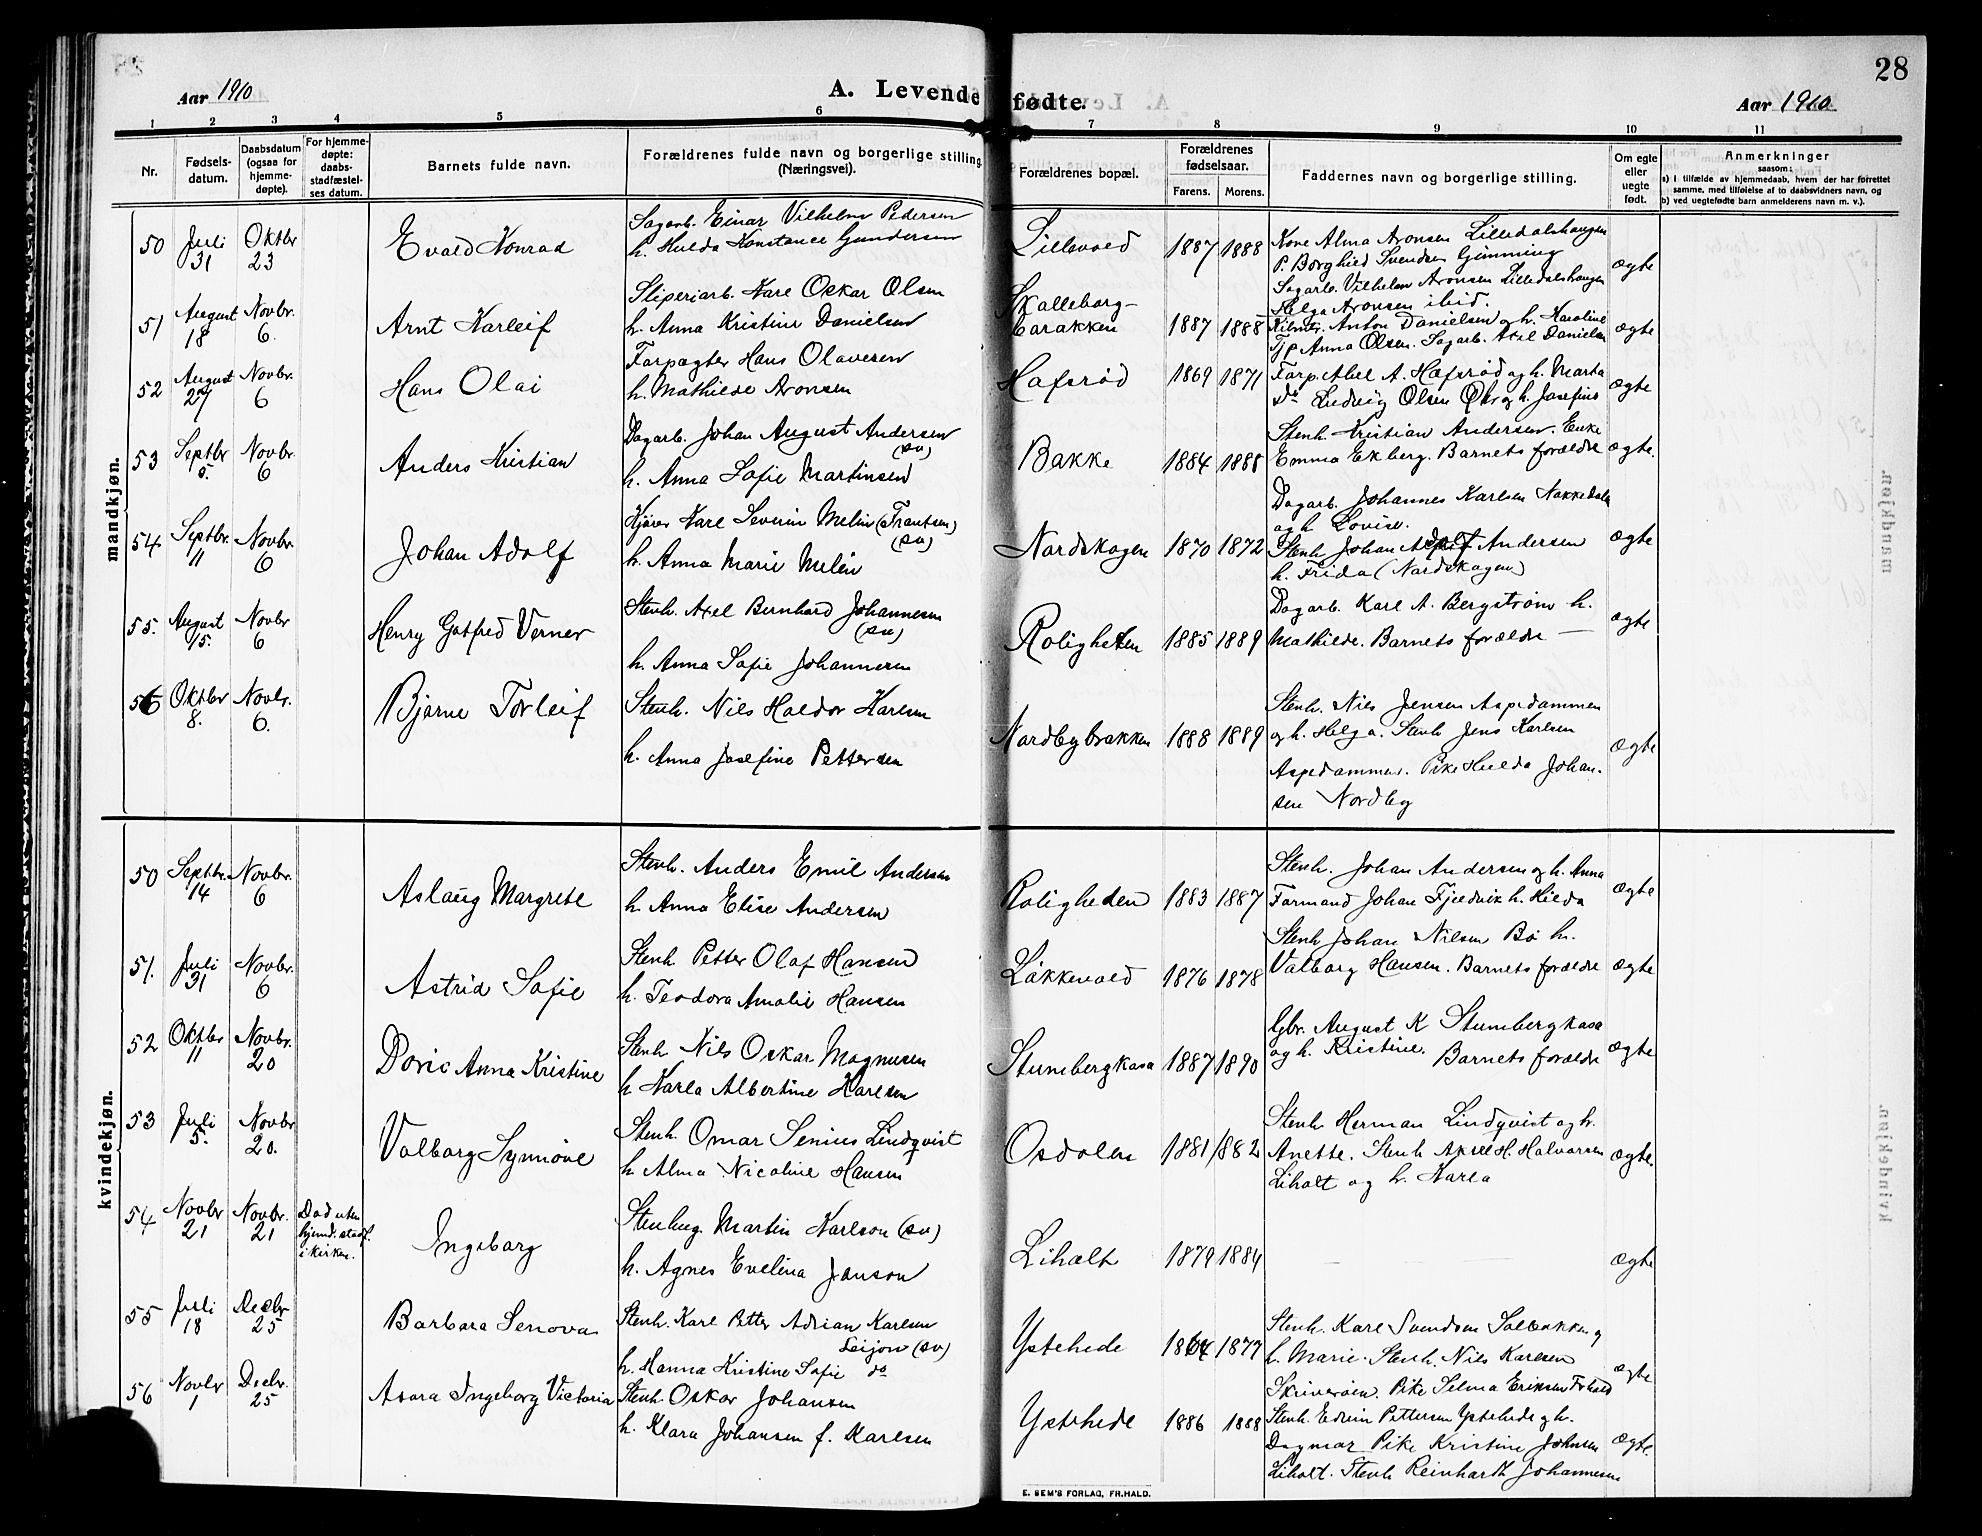 28
Aar 1910
A. Levende fødte.
Aar 1910
1 2 3 4 5 6 7 8 9 10 11
Nr.
Fødsels-
datum.
Daabsdatum
(ogsaa for
hjemme-
døpte).
For hjemme-
døpte:
daabs-
stadfæstel-
ses datum.
Barnets fulde navn.
Forældrenes fulde navn og borgerlige stilling
(Næringsvei).
Forældrenes bopæl.
Forældrenes
fødselsaar.
Farens. Morens.
Faddernes navn og borgerlige stilling.
Om egte
eller
uegte
født.
Anmerkninger
saasom:
a) i tilfælde av hjemmedaab, hvem der har forrettet
samme, med tilføielse af to daabsvidners navn, og
b) ved uegtefødte barn anmelderens navn m. v.).
mandkjøn.
50 Juli 31 Oktbr 23
Evald Konrad
Sagarb. Einar Vilhelm Pedersen
h. Hulda Konstance Gundersen
Lillevold 1887 1888
Kone Alma Aronsen Lilledalshaugen
P. Borghild Svendsen Gimming
Sagarb. Vilhelm Aronsen Lilledalshaugen
Helga Aronsen ibid.
ægte
51 August 18 Novbr. 6
Arnt Karleif
Sliperiarb. Karl Oskar Olsen
h. Anna Kristine Danielsen
Skalleborg-
barakken 1887 1888
Anton Danielsen og h. Karoline
Tjp Anna Olsen. Sagarb. Axel Danielsen
ægte
52 August 27 Novbr. 6
Hans Olai
Forpagter Hans Olavesen
h. Mathilde Aronsen
Hafsrød 1869 1871
Forp. Abel A. Hafsrød og h. Marta
do Ludvig Olsen og h. Josefine
ægte
53 Septbr 5. Novbr. 6
Anders Kristian
Dagarb. Johan August Andersen
(sv)
h. Anna Sofie Martinsen
Bakke 1884 1888
Stenh. Kristian Andersen. Enke
Emma Ekberg. Barnets forældre
ægte.
54 Septbr. 11 Novbr. 6
Johan Adolf
Kjører Karl Severin Melin (Frantsen)
(sv)
h. Anna Marie Melin
Nordskogen 1870 1872
Dagarb. Johannes Karlsen Nakkedalen
og h. Lovise.
Stenh Johan Adolf Andersen
h. Frida (Nordskogen)
ægte
55. August 15. Novbr 6
Henry Gotfred Verner
Stenh. Axel Bernhard Johannesen
(sv)
h. Anna Sofie Johannesen
Rolighethen 1885 1889
Dagarb. Karl A. Bergstrøm h.
Mathilde. Barnets forældre —
ægte
56 Oktbr 8. Novbr. 6.
Bjarne Torleif
Stenh. Nils Haldor Karlsen
h. Anna Josefine Pettersen
Nordbybrakken 1888 1889
Stenh. Nils Jensen Aspedammen
og h. Helga. Stenh Jens Karlsen
Aspedammen. Pike Hulda Johan-
sen Nordby
ægte
kvindekjøn.
50 Septbr. 14 Novbr. 6
Aslaug Margrete
Stenh. Anders Emil Andersen
h. Anna Elise Andersen
Roligheden 1883 1887
Stenh. Johan Andersen og h. Anna
Formand Johan Fjeldvik h. Hilda
ægte
51. Juli 31 Novbr. 6
Astrid Sofie
Stenh Petter Olaf Hansen
h. Teodora Amalie Hansen
Løkkevold 1876 1878
Stenh Johan Nilsen Bø h.
Valborg Hansen. Barnets forældre
ægte
52 Oktbr 11 Novbr. 20
Doris Anna Kristine
Stenh Nils Oskar Magnusen
h Karla Albertine Karlsen
Stumbergkasa 1887 1890
Gbr. August K Stumbergkasa
og h. Kristine. Barnets forældre
ægte
53 Juli 5. Novbr 20.
Valborg Synnøve
Stenh. Omar Senius Lindqvist
h Alma Nicoline Hansen
Osdolen 1881 1882
Stenh Herman Lindqvist og h.
Anette. Stenh Aksel H. Halvorsen
Liholt og h. Karla
ægte.
54 Novbr 21 Novbr. 21
Død uten
hjemd. stadf.
i kirken.
Ingeborg
Stenhug. Martin Karlson (sv)
h. Agnes Evelina Janson
Liholt 1879 1884
ægte
55 Juli 18 Decbr 25
Barbara Senova
Stenh. Karl Petter Adrian Karlsen
Leijon (sv)
h. Hanna Kristine Sofie do
Ystehede 1864 1877
Stenh. Karl Svendsen Solbakken og
h. Marie. Stenh. Nils Karlsen
Skriverøen. Pike Selma Eriksen
ægte
56 Novbr 1 Decbr. 25
Asora Ingeborg Victoria
Stenh Oskar Johansen
h. Klara Johansen f. Karlsen
Ystehede 1886 1888
Stenh. Edvin Pettersen Ystehede og h.
Dagmar Pike Kristine Johnsen
Liholt. Stenh Reinhardt Johannesen
ægte.
E. SEM'S FORLAG, FR.HALD.